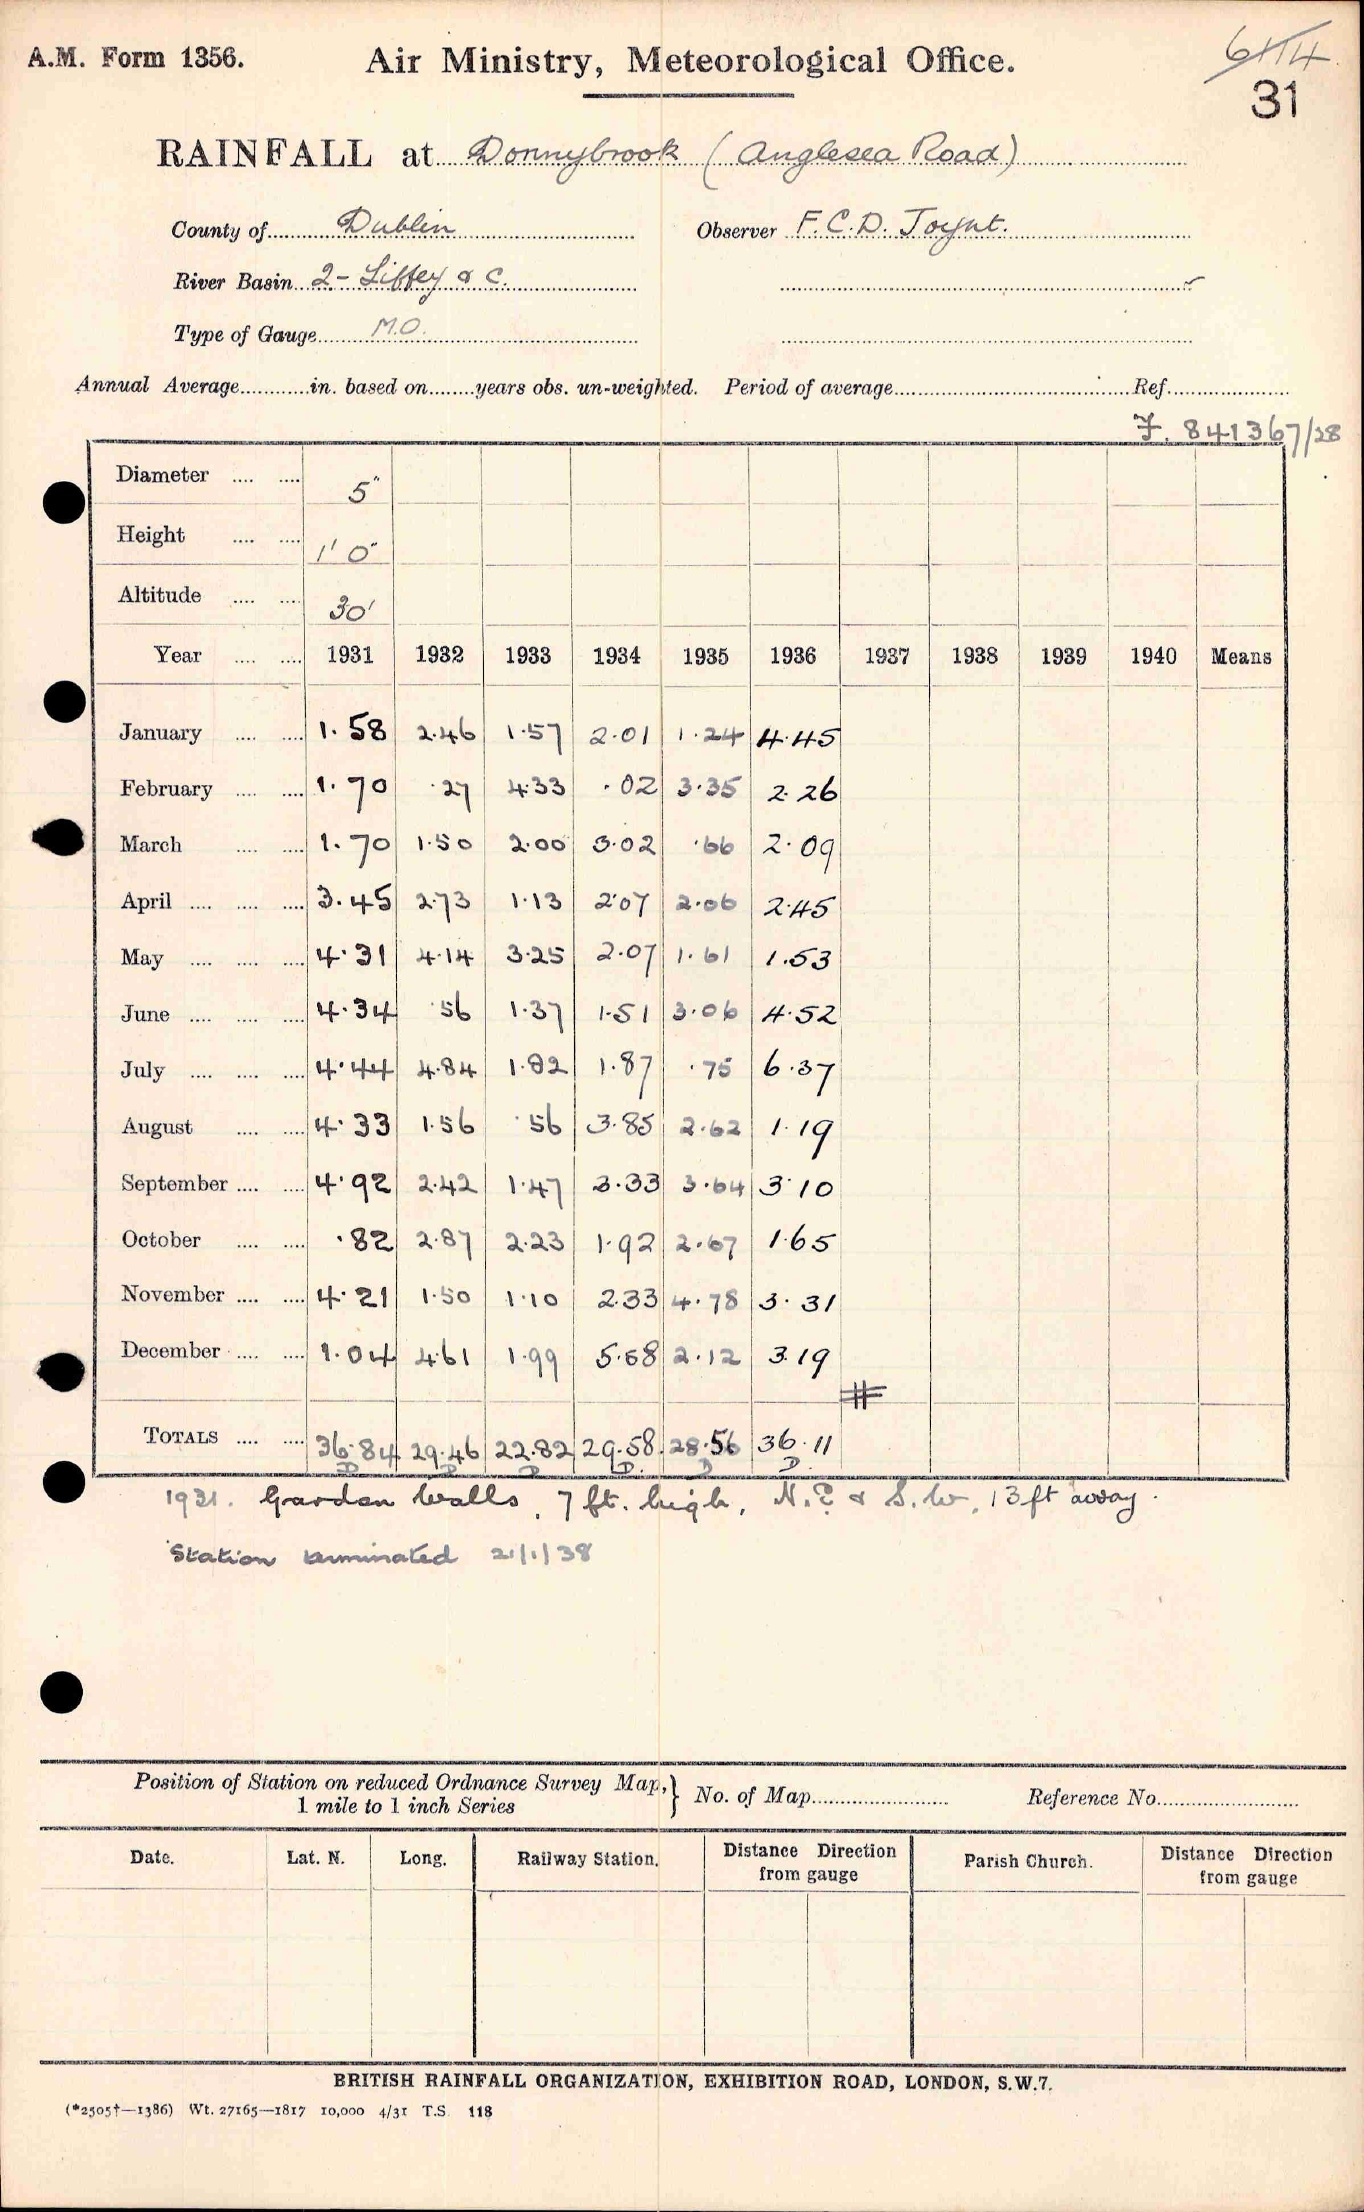 A.M. Form 1356.
Air Ministry, Meteorological Office.
6114
31
RAINFALL at Donnybrook (Anglesea Road)
County of Dublin Observer F.C.D. Joynt.
River Basin 2- Liffey & C.
Type of Gauge M.O.
Annual Average in. based on years obs. un-weighted. Period of average Ref.
F. 841367/28
Diameter 5"
Height 1' 0"
Altitude 30'
Year 1931 1932 1933 1934 1935 1936 1937 1938 1939 1940 Means
January 1.58 2.46 1.57 2.01 1.24 4.45
February 1.70 .27 4.33 .02 3.35 2.26
March 1.70 1.50 2.00 3.02 .66 2.09
April 3.45 2.73 1.13 2.07 2.06 2.45
May 4.31 4.14 3.25 2.07 1.61 1.53
June 4.34 .56 1.37 1.51 3.06 4.52
July 4.44 4.84 1.82 1.87 .75 6.37
August 4.33 1.56 .56 3.85 2.62 1.19
September 4.92 2.42 1.47 3.33 3.64 3.10
October .82 2.87 2.23 1.92 2.67 1.65
November 4.21 1.50 1.10 2.33 4.78 3.31
December 1.04 4.61 1.99 5.58 2.12 3.19
TOTALS 36.84 29.46 22.82 29.58 28.56 36.11
D D D D D D
1931. Garden Walls, 7 ft. high, N.E & S.W, 13 ft away.
Station terminated 21/1/38
Position of Station on reduced Ordnance Survey Map, } No. of Map Reference No.
1 mile to 1 inch Series
Date. Lat. N. Long. Railway Station. Distance Direction from gauge Parish Church. Distance Direction from gauge
BRITISH RAINFALL ORGANIZATION, EXHIBITION ROAD, LONDON, S.W.7.
(*2505†—1386) Wt. 27165—1817 10,000 4/31 T.S. 118